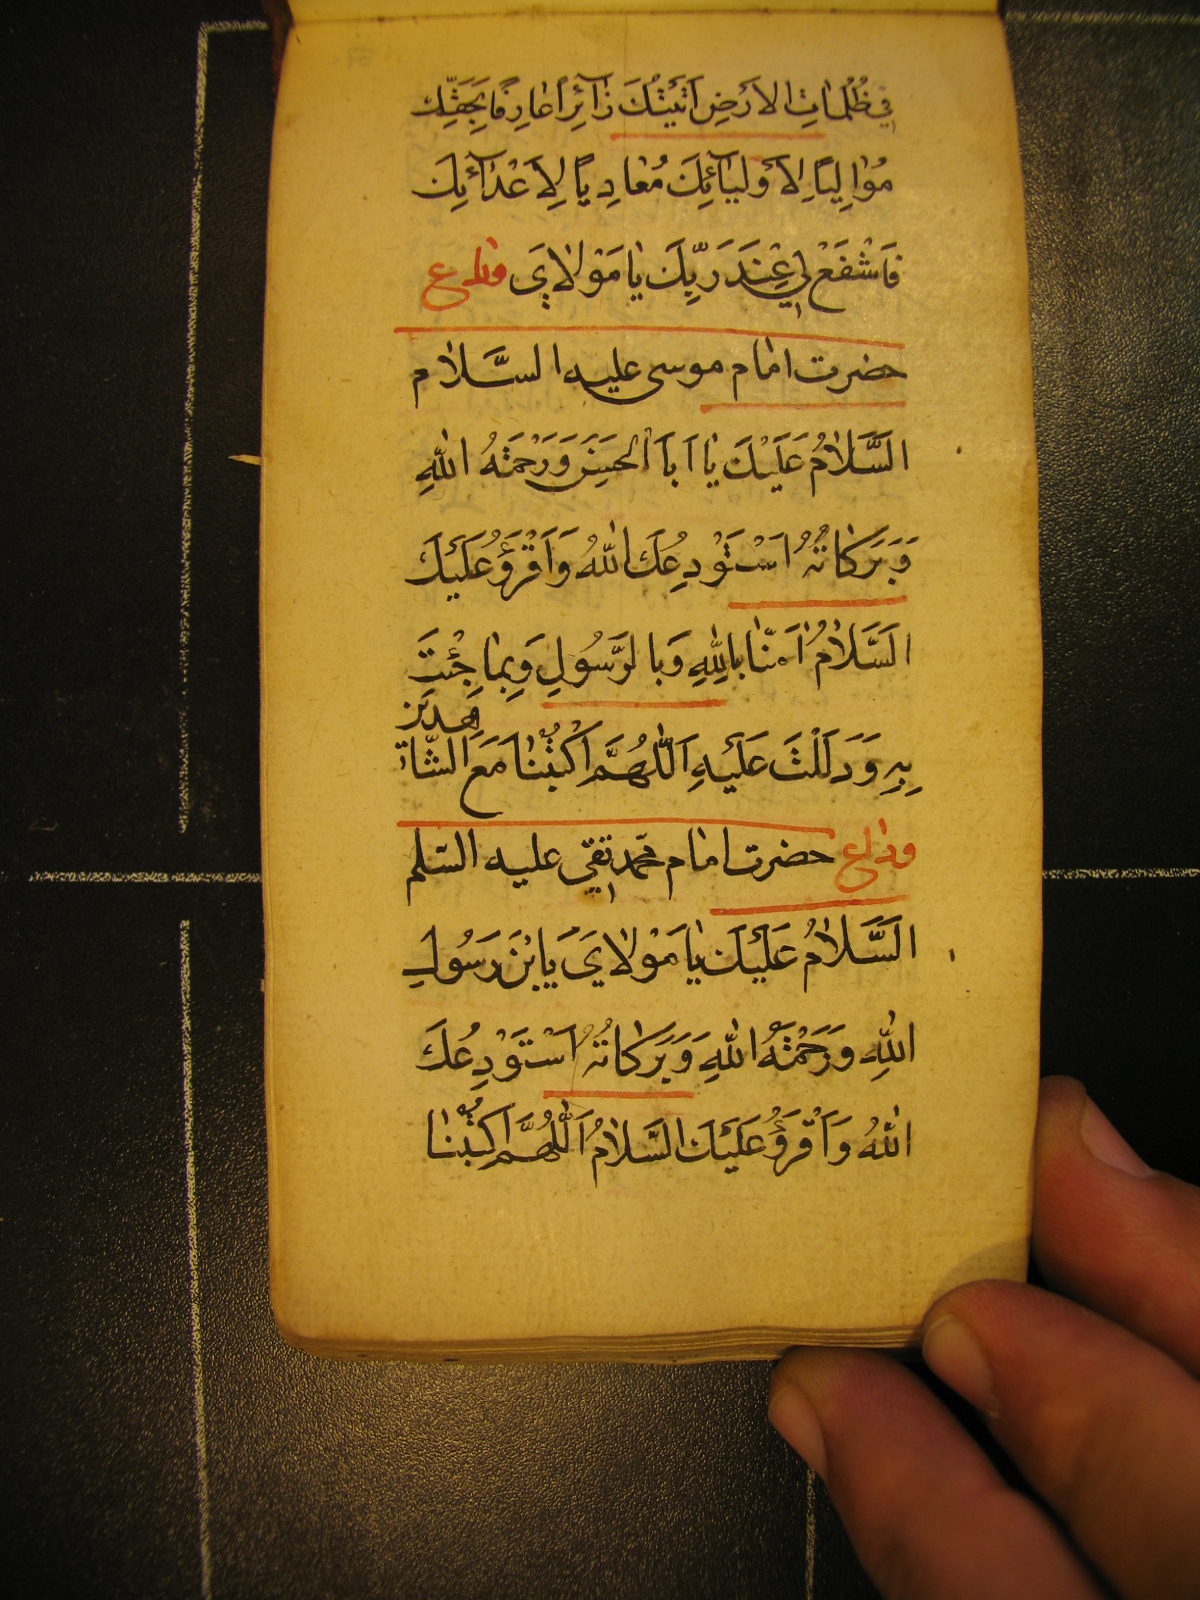 فِي ظُلُمَاتِ الْاَرْضِ اَتَيْتُكَ زَآئِرًا عَارِفًا بِحَقِّكَ
مُوَالِيًا لِاَوْلِيَآئِكَ مُعَادِيًا لِاَعْدَآئِكَ
فَاشْفَعْ لِي عِنْدَ رَبِّكَ يَا مَوْلَايَ وداع
حضرت امام موسى عليه السَّلام
اَلسَّلَامُ عَلَيْكَ يَا اَبَا الْحَسَنِ وَرَحْمَةُ اللهِ
وَبَرَكَاتُهُ اَسْتَوْدِعُكَ اللهُ وَاَقْرَؤُ عَلَيْكَ
السَّلَامُ اٰمَنَّا بِاللهِ وَبِالرَّسُولِ وَبِمَا جِئْتَ
بِهِ وَدَلَلْتَ عَلَيْهِ اَللّٰهُمَّ اكْتُبْنَا مَعَ الشَّاهدين
وداع حضرت امام محمد تقي عليه السّلم
اَلسَّلَامُ عَلَيْكَ يَا مَوْلَايَ يَابْنَ رَسُولِ
اللهِ وَرَحْمَةُ اللهِ وَبَرَكَاتُهُ اَسْتَوْدِعُكَ
اللهُ وَاَقْرَؤُ عَلَيْكَ السَّلَامُ اَللّٰهُمَّ اكْتُبْنَا